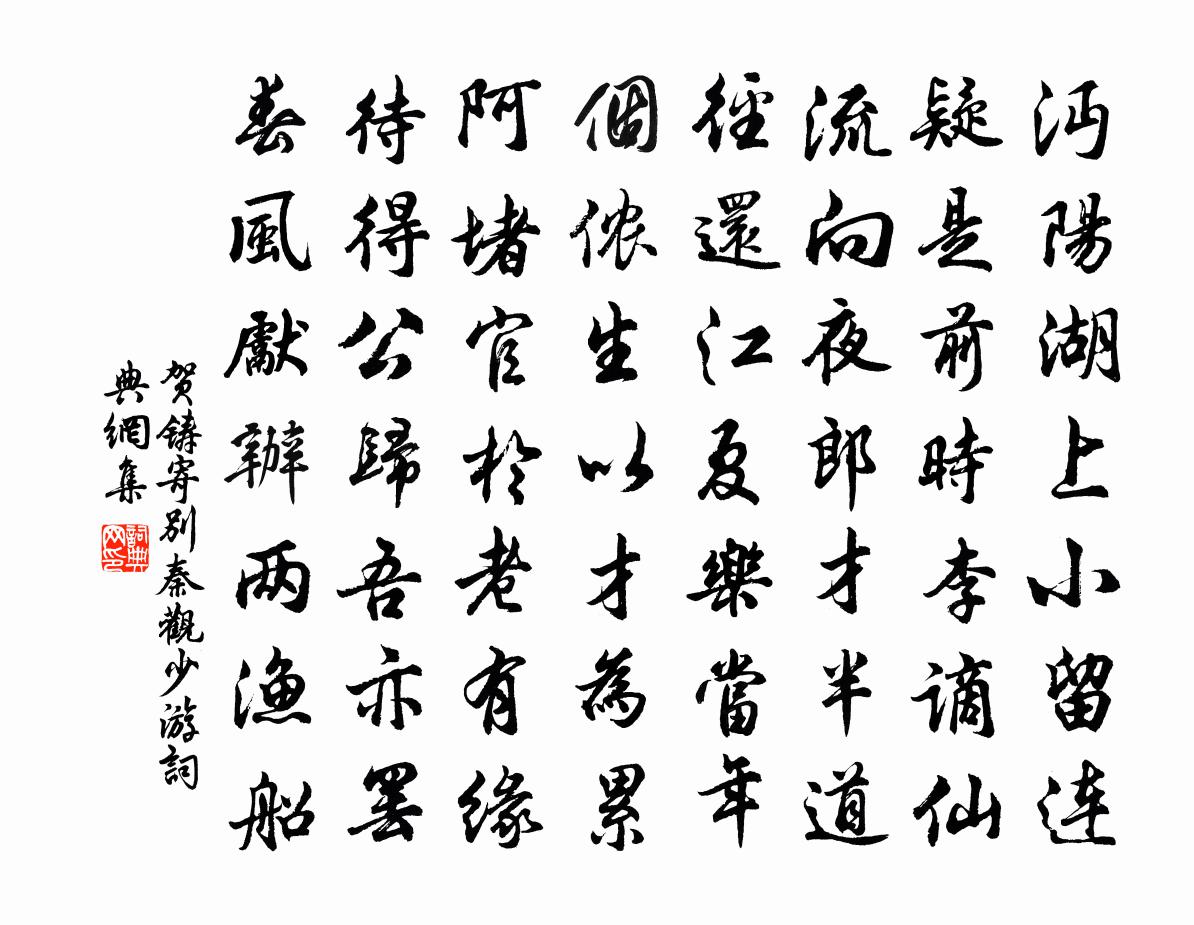 沔陽湖上小留連
疑是前時李謫仙
流向夜郎才半道
徑還江夏樂當年
個侬生以才為累
阿堵官於老有緣
待得公歸吾亦罢
春風獻辦两漁船
贺鑄寄别秦觀少游詞
典網集
詞典网印